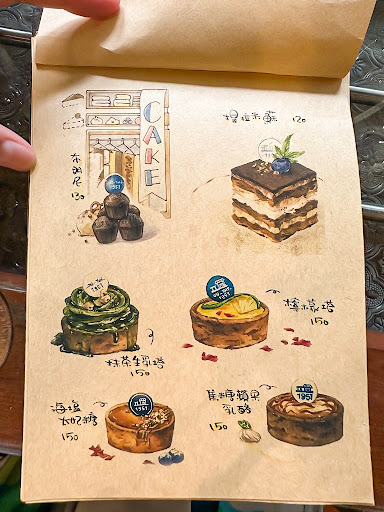 CAKE
布朗尼
130
1951
提拉米蘇 120
1951
抹茶生乳塔
150
1951
檸檬塔
150
1951
海塩
太妃糖
150
1951
焦糖蘋果
乳酪
150
1951